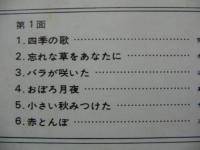 第1面
1.四季の歌
2.忘れな草をあなたに
3.バラが咲いた
4.おぼろ月夜
5.小さい秋みつけた
6.赤とんぼ